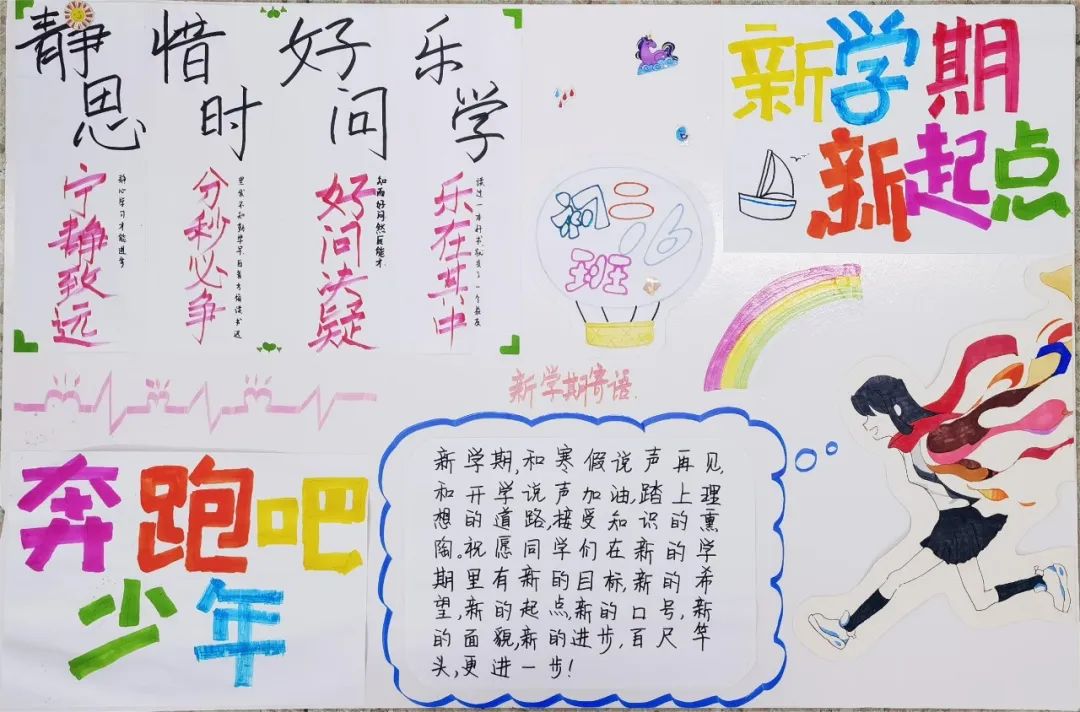 静思
惜时
好问
乐学
宁静致远
静心学习才能进步
分秒必争
黑发不知勤学早白首方悔读书迟
好问决疑
知而好问然后能才
乐在其中
读过一本好书就交了一个益友
新学期
新起点
初二
班
新学期寄语
奔跑吧
少年
新学期,和寒假说声再见,
和开学说声加油,踏上理
想的道路,接受知识的熏
陶。祝愿同学们在新的学
期里有新的目标,新的希
望,新的起点,新的口号,新
的面貌,新的进步,百尺竿
头,更进一步!